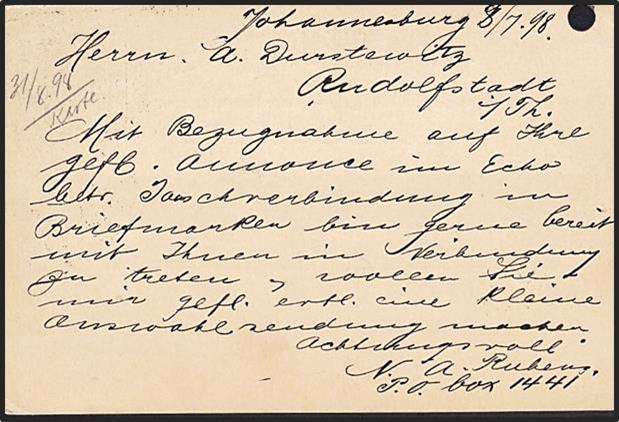 Johannesburg 8/7.98.
Herrn. A. Durstewitz
Rudolfstadt
i/Th.
31/8.98
Karte
Mit Bezugnahme auf Ihre
gefl. Annonce im Echo
betr. Tauschverbindung in
Briefmarken bin gerne bereit
mit Ihnen in Verbindung
zu treten, wollen Sie
mir gefl. evtl. eine kleine
Auswahlsendung machen
Achtungsvoll
N. A. Rubens.
P.O. box 1441